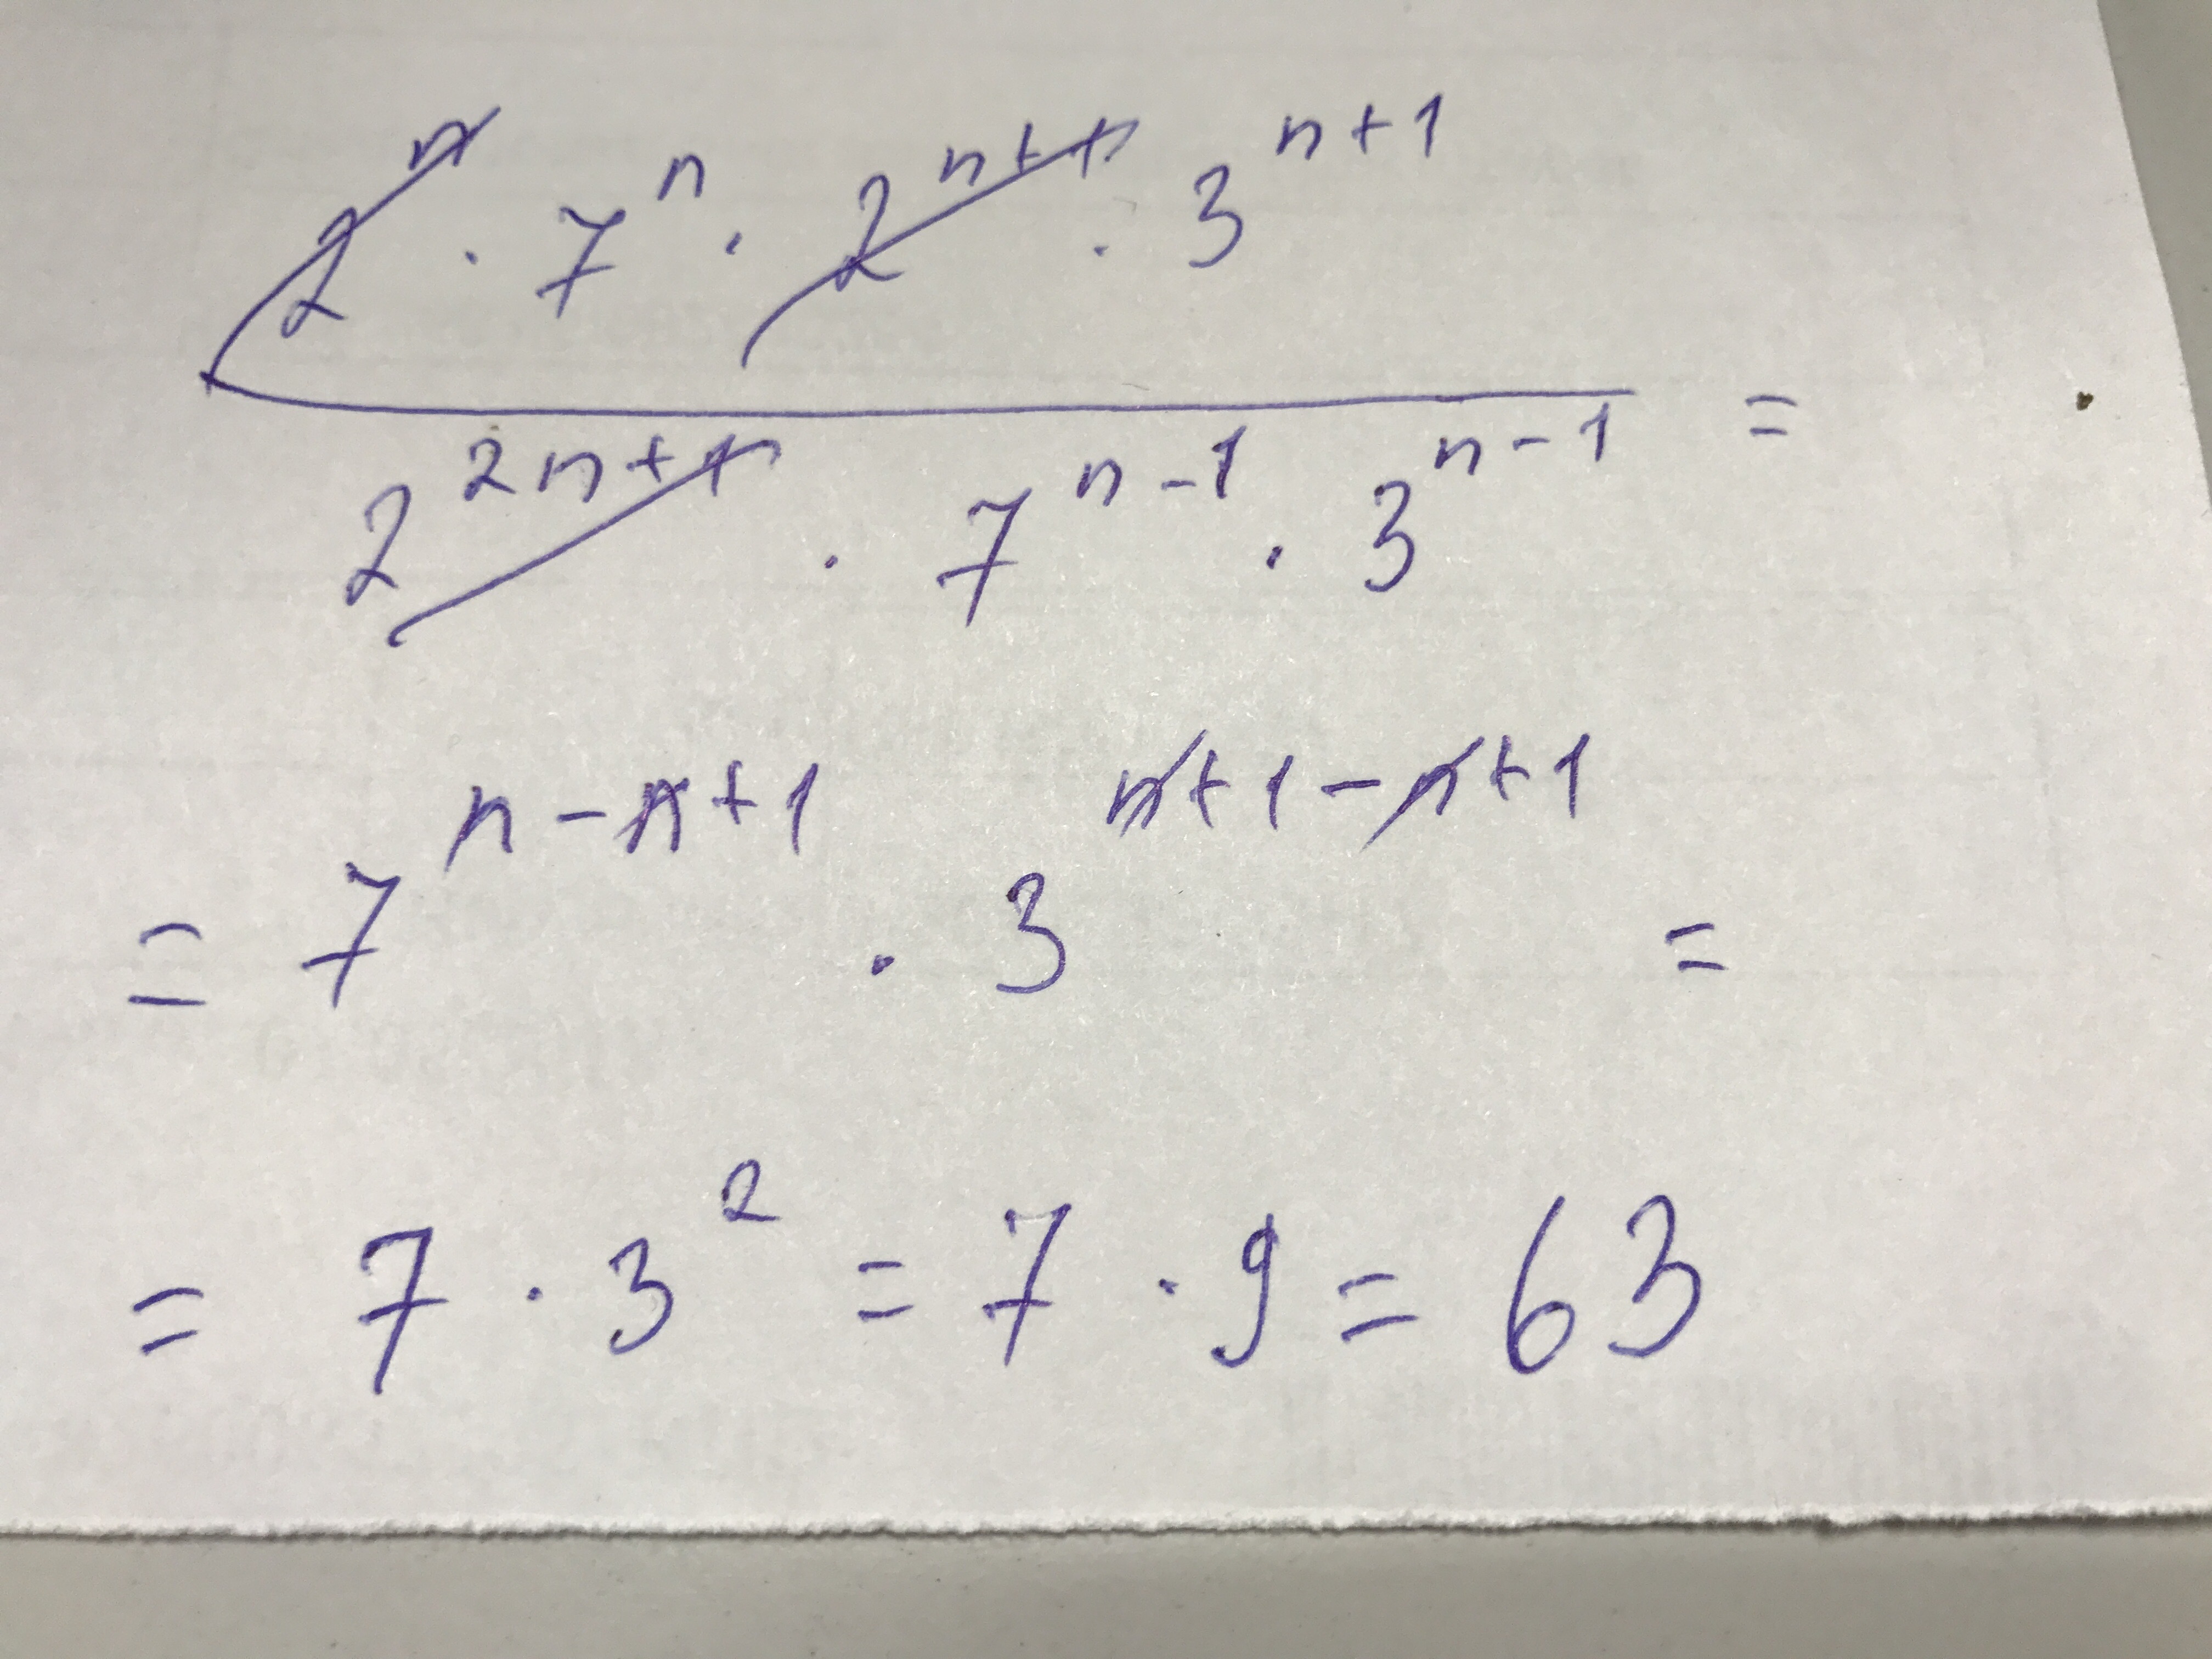 2ⁿ · 7ⁿ · 2ⁿ⁺¹ · 3ⁿ⁺¹
2²ⁿ⁺¹ · 7ⁿ⁻¹ · 3ⁿ⁻¹ =
= 7ⁿ⁻ⁿ⁺¹ · 3ⁿ⁺¹⁻ⁿ⁺¹ =
= 7 · 3² = 7 · 9 = 63